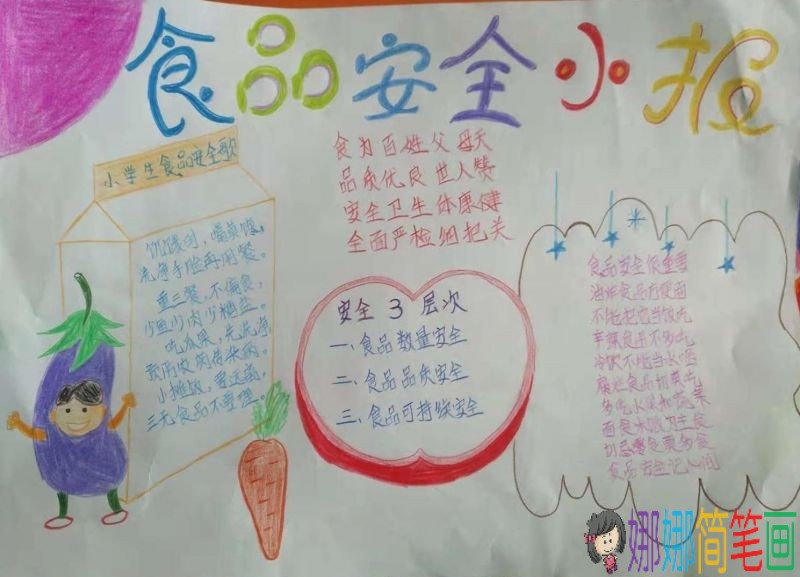 食品安全小报
小学生食品安全歌
饥饿时,喝菜馊。
洗净手脸再用餐。
重三餐,不偏食,
少鱼少肉少糖盐。
吃瓜菜,先洗净,
小摊贩,要远离。
三无食品不要理。
食为百姓父母天
品质优良世人赞
安全卫生体康健
全面严检细把关
安全3层次
一、食品数量安全
二、食品品质安全
三、食品可持续安全
食品安全很重要
油炸食品方便面
不能把它当饭吃
辛辣食品不多吃
冷饮不能当水喝
腐烂食品切莫吃
多吃水果和蔬菜
面食米饭为主食
切忌零食要多食
食品安全记心间
娜娜简笔画